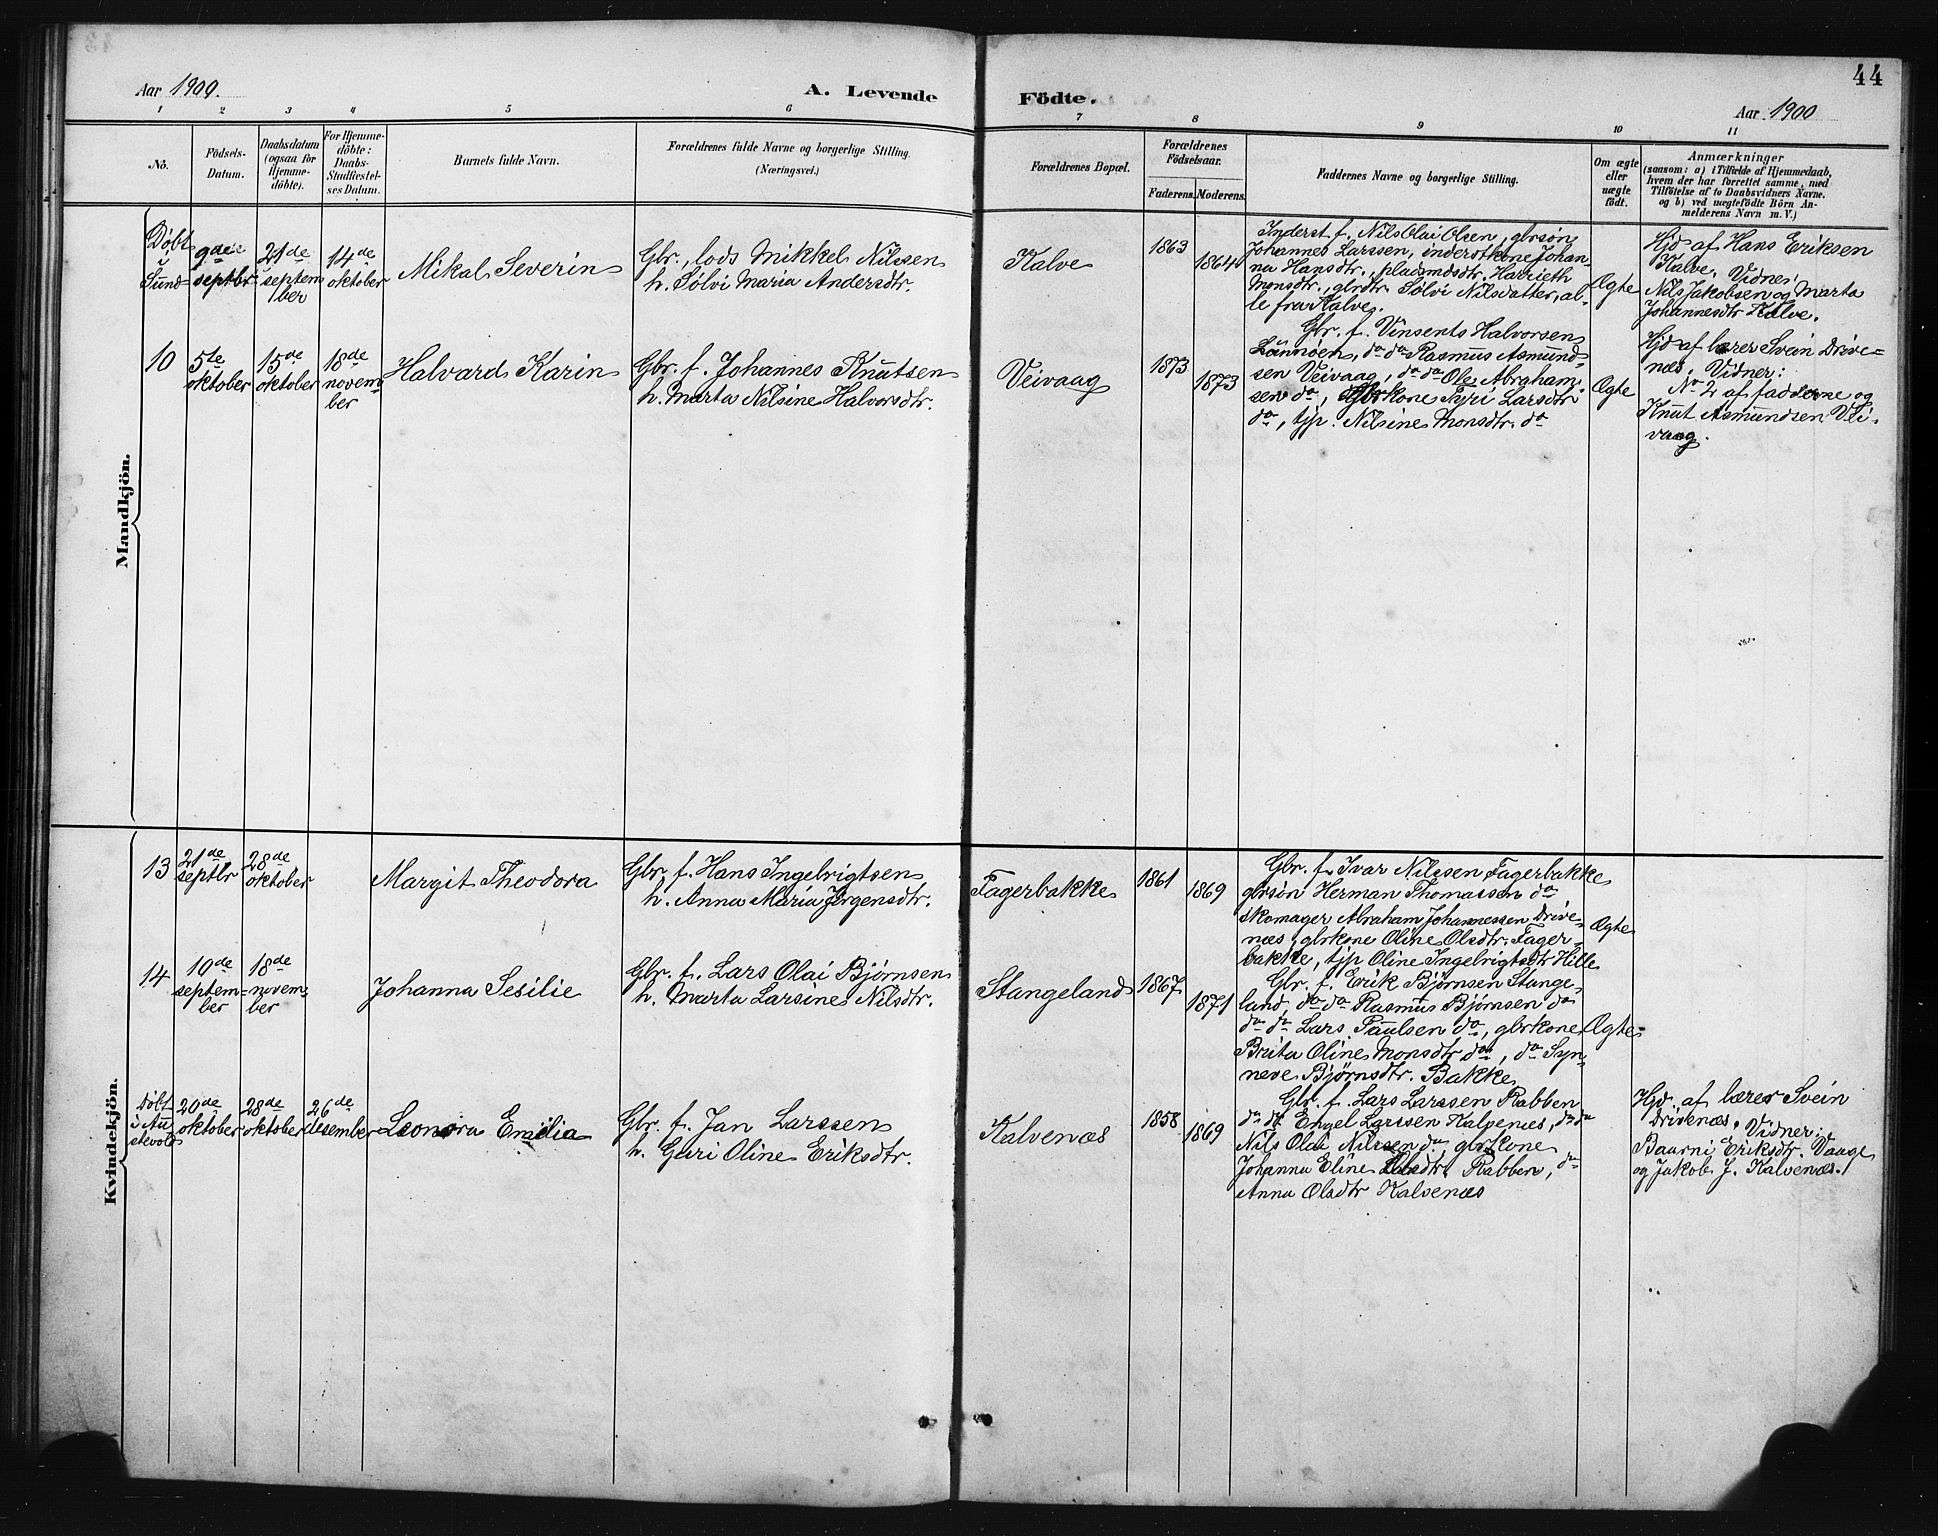 44
Aar 1900.
A. Levende
Födte.
Aar 1900
1 2 3 4 5 6 7 8 9 10 11
No.
Födsels-
Datum.
Daabsdatum
(ogsaa for
Hjemme-
döbte).
For Hjemme-
döbte:
Daabs-
Stadfæstel-
ses Datum.
Barnets fulde Navn.
Forældrenes fulde Navne og borgerlige Stilling.
(Næringsvei.)
Forældrenes Bopæl.
Forældrenes
Födselsaar.
Faderens.
Moderens.
Faddernes Navne og borgerlige Stilling.
Om ægte
eller
uægte
födt.
Anmærkninger
(saasom: a) i Tilfælde af Hjemmedaab,
hvem der har forrettet samme, med
Tilföielse af to Daabsvidners Navne.
og b) ved uægtefödte Börn An-
melderens Navn m. V.)
Mandkjön.
Døbt
i
Sund
9de
septbr
21de
septem
ber
14de
oktober
Mikal Severin
Gbr., lods Mikkel Nilssen
h. Sølvi Maria Andersdtr.
Kalve
1863
1864
Inderst f. Nils Olai Olsen, gbrsøn
Johannes Larssen, inderstkone Johan-
na Hansdtr., pladsmdsdtr. Harrieth
Monsdtr., gbrdtr. Sølvi Nilsdatter, al-
le fra Kalve.
Ægte
Hjd af Hans Eriksen
Kalve. Vidner:
Nils Jakobsen og Marta
Johannesdtr Kalve.
10
5te
oktober
15de
oktober
18de
novem
ber
Halvard Karin
Gbr. f. Johannes Knutsen
h. Marta Nilsine Halvorsdtr.
Veivaag
1873
1873
Gbr. f. Vinsents Halvorsen
Lønnøen, do do Rasmus Asmund-
sen Veivaag, do do Ole Abraham-
sen do, Gbrkone Guri Larsdtr
do, tjp. Nilsine Monsdtr. do
Ægte
Hjd af lærer Svein Drive=
næs, Vidner:
No 2 af fadderne og
Knut Asmundsen Vei-
vaag.
Kvindekjön.
13
21de
septbr
28de
oktober
Margit Theodora
Gbr. f. Hans Ingebrigtsen
h. Anna Maria Jørgensdtr.
Fagerbakke
1861
1869
Gbr. f. Ivar Nilssen Fagerbakke
gbrsøn Herman Thomassen do
skomager Abraham Johannessen Drive-
næs, gbrkone Oline Olsdtr. Fager-
bakke, tjp Oline Ingebrigtsdtr Hille
Ægte
14
10de
septem=
ber
18de
novem=
ber
Johanna Sesilie
Gbr. f. Lars Olai Bjørnsen
h. Marta Larsine Nilsdtr.
Stangeland
1867
1871
Gbr. f. Erik Bjørnsen Stange-
land, do do Rasmus Bjørnsen do
do do Lars Paulsen do, gbrkone
Brita Oline Monsdtr do, do Syn-
neve Bjørnsdtr. Bakke
Ægte=
Døbt
i Au
stevold
20de
oktober
28de
oktober
26de
desember
Leonora Emilia
Gbr. f. Jan Larssen
h. Guri Oline Eriksdtr.
Kalvenæs
1858
1869
Gbr. f. Lars Larssen Rabben
do do Engel Larssen Kalvenæs, do do
Nils Olai Nilssen do, gbrkone
Johanna Eline Olsdtr Rabben, do
Anna Olsdtr Kalvenæs
Hjd. af lærer Svein
Drivenæs. Vidner:
Baarni Eriksdtr. Vaage
og Jakob J. Kalvenæs.